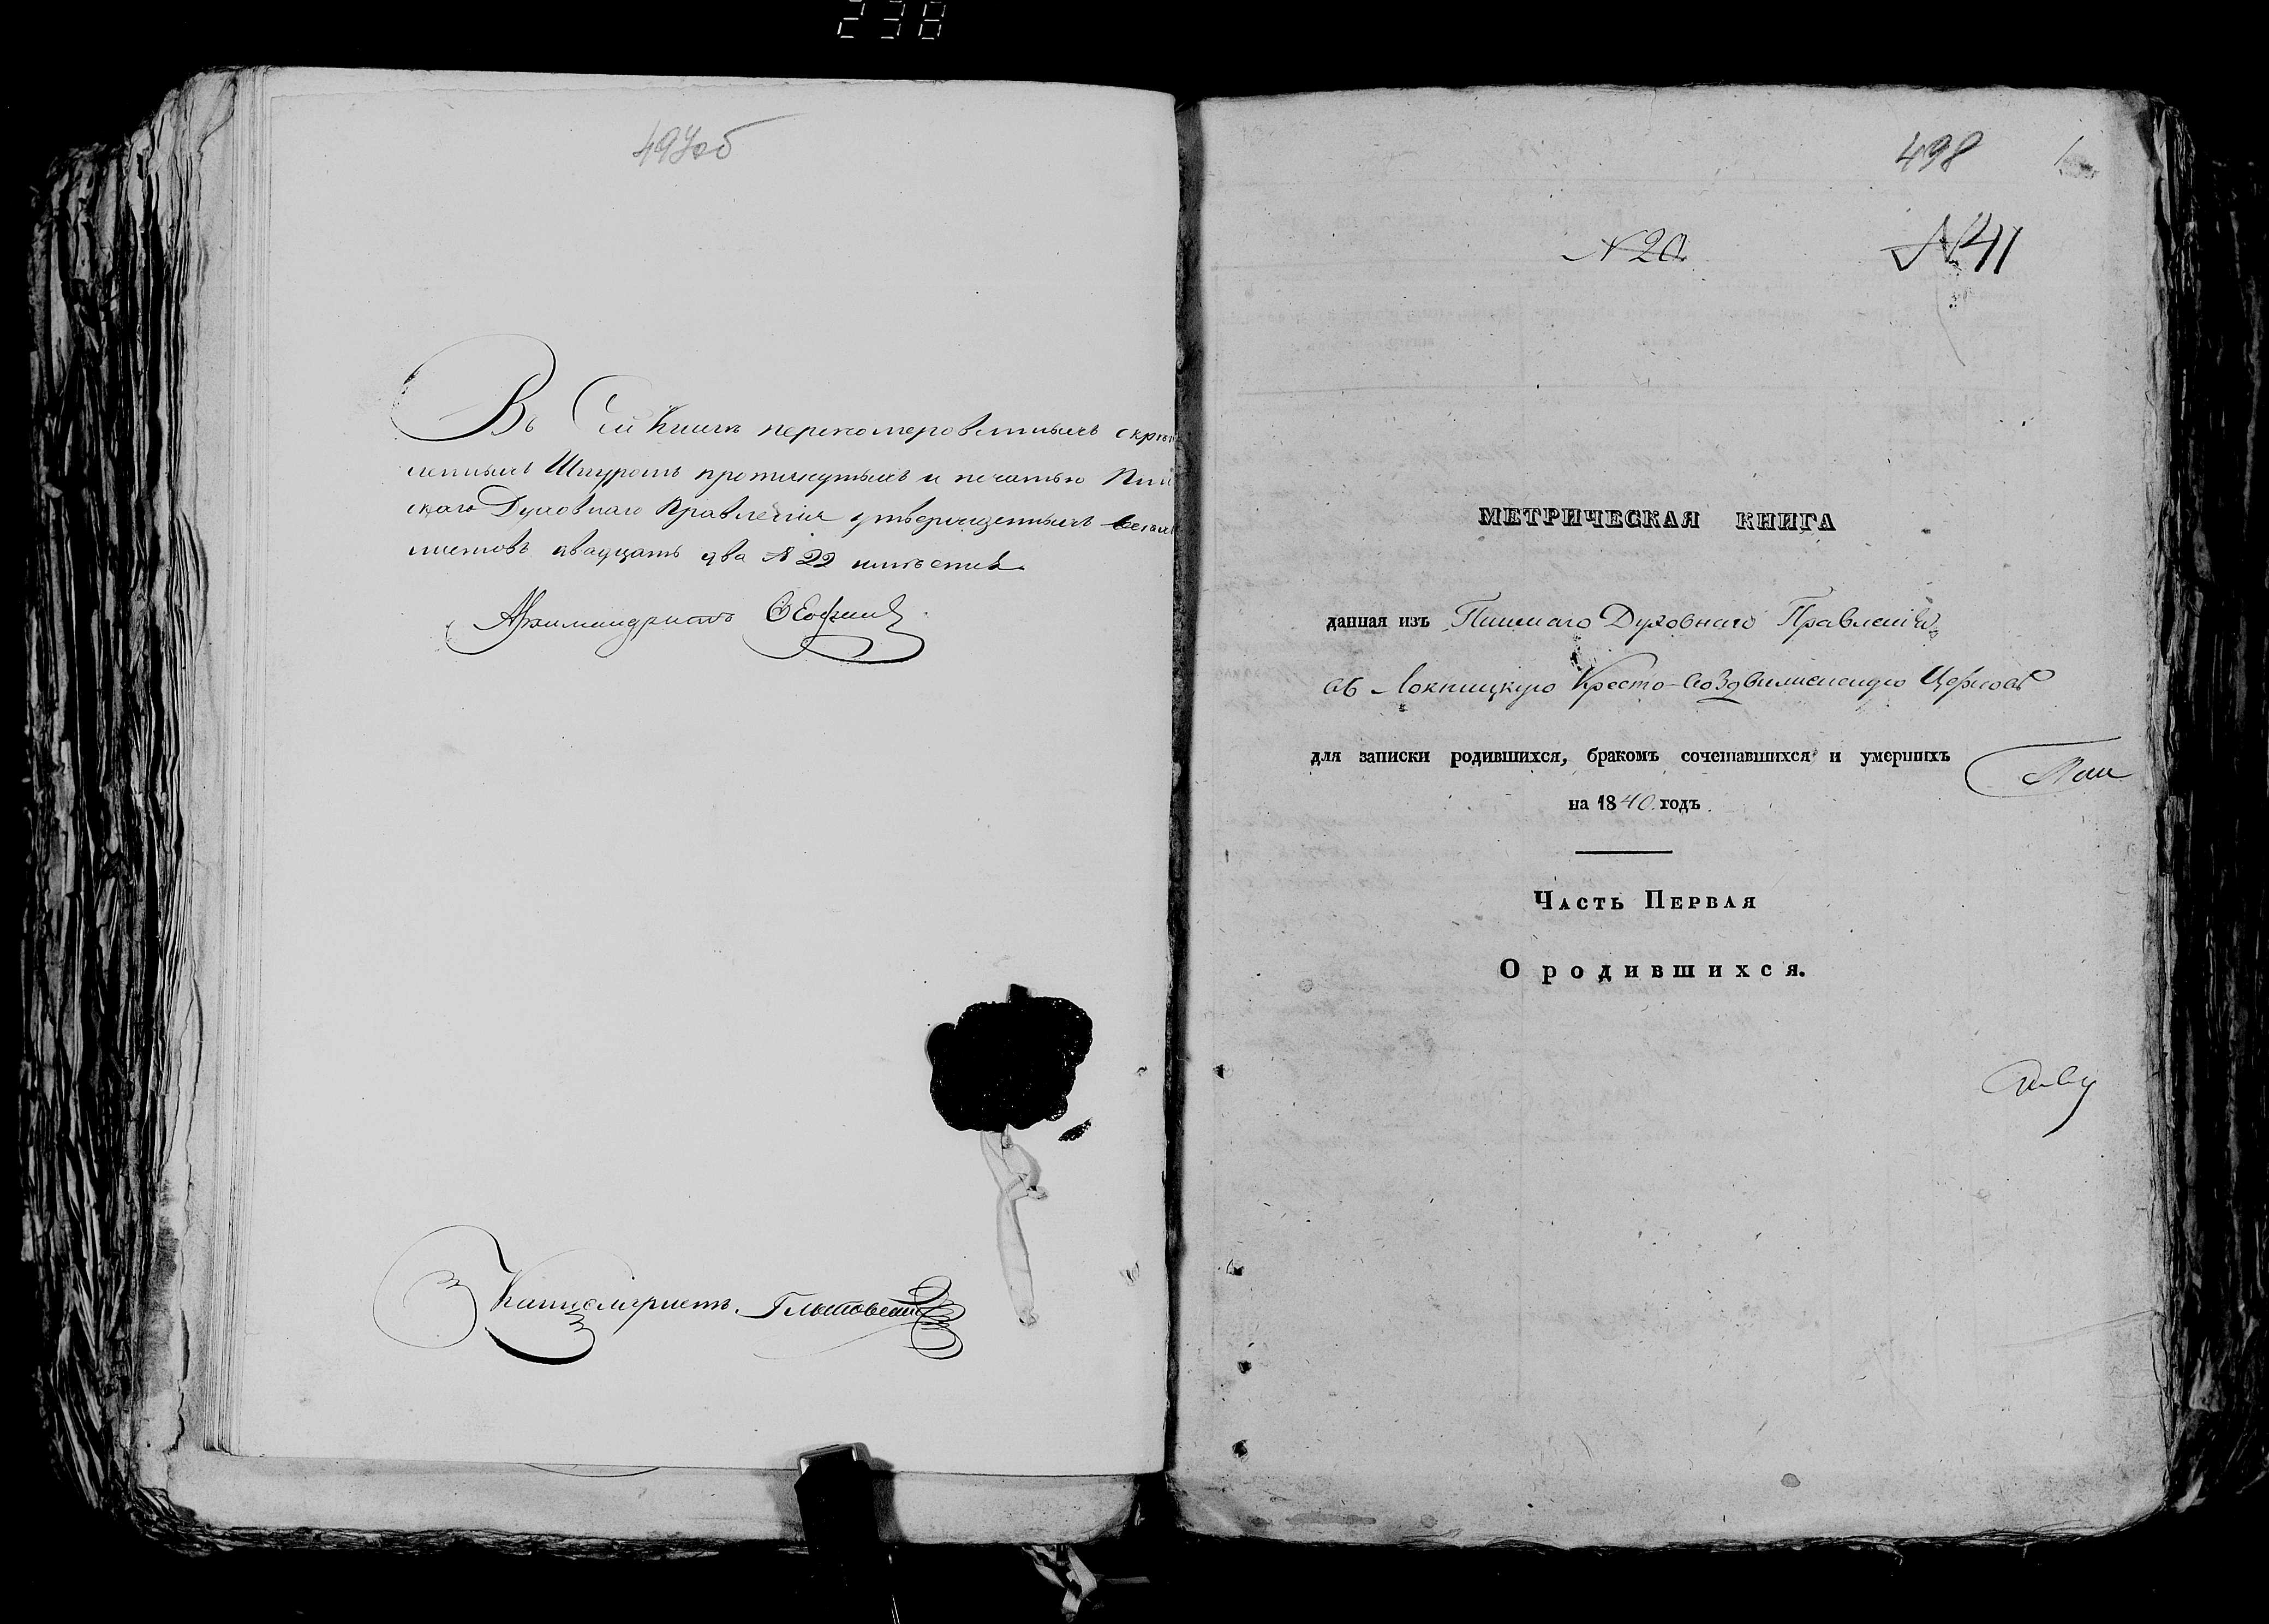 238
497об
Въ Сей Книгѣ перенумерованныхъ скрѣп
ленныхъ Шнуромъ протянутыхъ и печатью Пин
скаго Духовнаго Правленія утвержденныхъ
листовъ двадцать два № 22 имѣется
Архимандритъ
Канцеляристъ
498
№ 20.
№ 41
МЕТРИЧЕСКАЯ КНИГА
данная изъ Пинскаго Духовнаго Правленія
въ Локницкую Кресто-Воздвиженскую Церковь
для записки родившихся, бракомъ сочетавшихся и умершихъ
на 1840. годъ
Часть Первая
О родившихся.